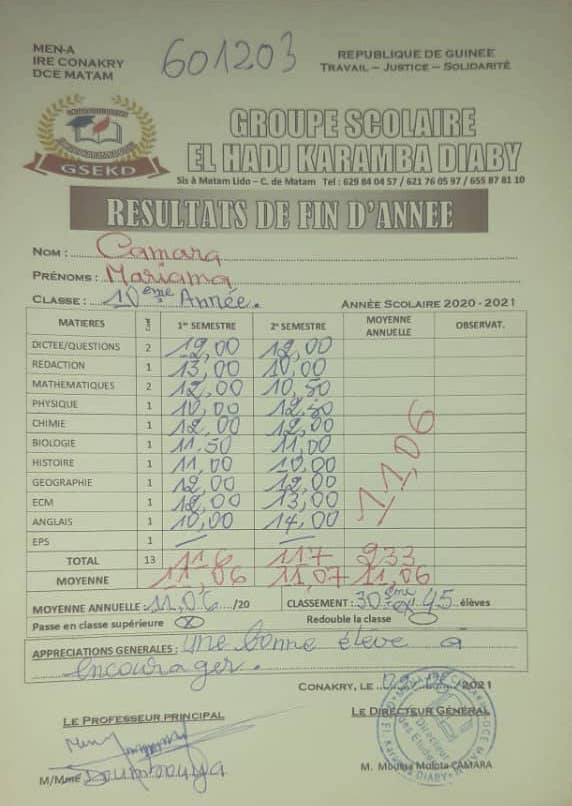 MEN-A
IRE CONAKRY
DCE MATAM
601203
REPUBLIQUE DE GUINEE
TRAVAIL – JUSTICE – SOLIDARITÉ
GSEKD
GROUPE SCOLAIRE
EL HADJ KARAMBA DIABY
Sis à Matam Lido – C. de Matam Tel : 629 84 04 57 / 621 76 05 97 / 655 87 81 10
RESULTATS DE FIN D'ANNEE
NOM : Camara
PRÉNOMS : Mariama
CLASSE : 10ème Année. ANNÉE SCOLAIRE 2020 - 2021
MATIERES 1er SEMESTRE 2e SEMESTRE MOYENNE ANNUELLE OBSERVAT.
DICTEE/QUESTIONS 2 12,00 12,00
REDACTION 1 13,00 10,00
MATHEMATIQUES 2 12,00 10,50
PHYSIQUE 1 10,00 12,50
CHIMIE 1 12,00 12,00
BIOLOGIE 1 11.50 11,00
HISTOIRE 1 11,00 10,00
GEOGRAPHIE 1 12,00 12,00
ECM 1 12,00 13,00
ANGLAIS 1 10,00 14,00
EPS 1
11,06
TOTAL 13 116 117 233
MOYENNE 11,06 11,07 11,06
MOYENNE ANNUELLE : 11,06 /20 CLASSEMENT : 30ème 45 élèves
Passe en classe supérieure X Redouble la classe
APPRECIATIONS GENERALES : une bonne élève a
encourager.
CONAKRY, LE /2021
LE PROFESSEUR PRINCIPAL LE DIRECTEUR GÉNÉRAL
M/Mme Doumbouya M. Moussa Molota CAMARA